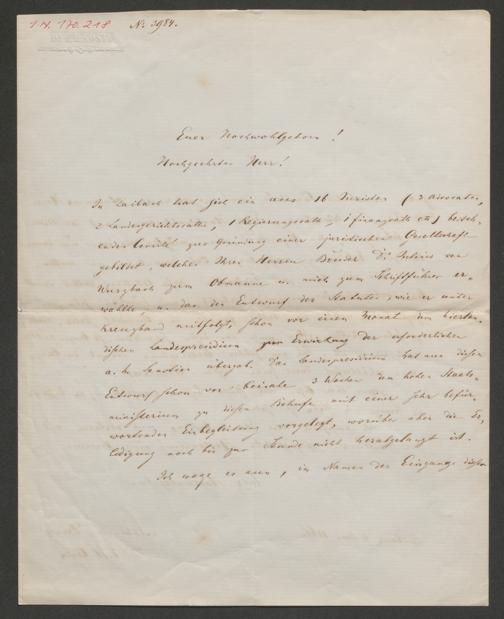 I.N. 170.218
No 3984.
Euer Hochwohlgeboren!
Hochgeehrter Herr!
In Laibach hat sich ein aus 16 Juristen (3 Advocaten,
2 Landesgerichtsräthe, 1 Regierungsrath, 1 Finanzrath etc) besteh-
endes Comité zur Gründung einer juristischen Gesellschaft
gebildet, welches Ihren Herrn Bruder Dr Julius von
Wurzbach zum Obmanne u. mich zum Schriftführer er-
wählte, u. das den Entwurf der Statuten, wie er unter
Kreuzband mitfolgt, schon vor einem Monat dem hierlän-
dischen Landespräsidium zur Erwirkung der erforderlichen
a. h. Sanction übergab. Das Landespräsidium hat nun diesen
Entwurf schon vor beinahe 3 Wochen dem hohen Staats-
ministerium zu diesem Behufe mit einer sehr befür-
wortenden Einbegleitung vorgelegt, worüber aber die Er-
ledigung noch bis zur Stunde nicht herabgelangt ist.
Ich wage es nun, im Namen des Eingangs